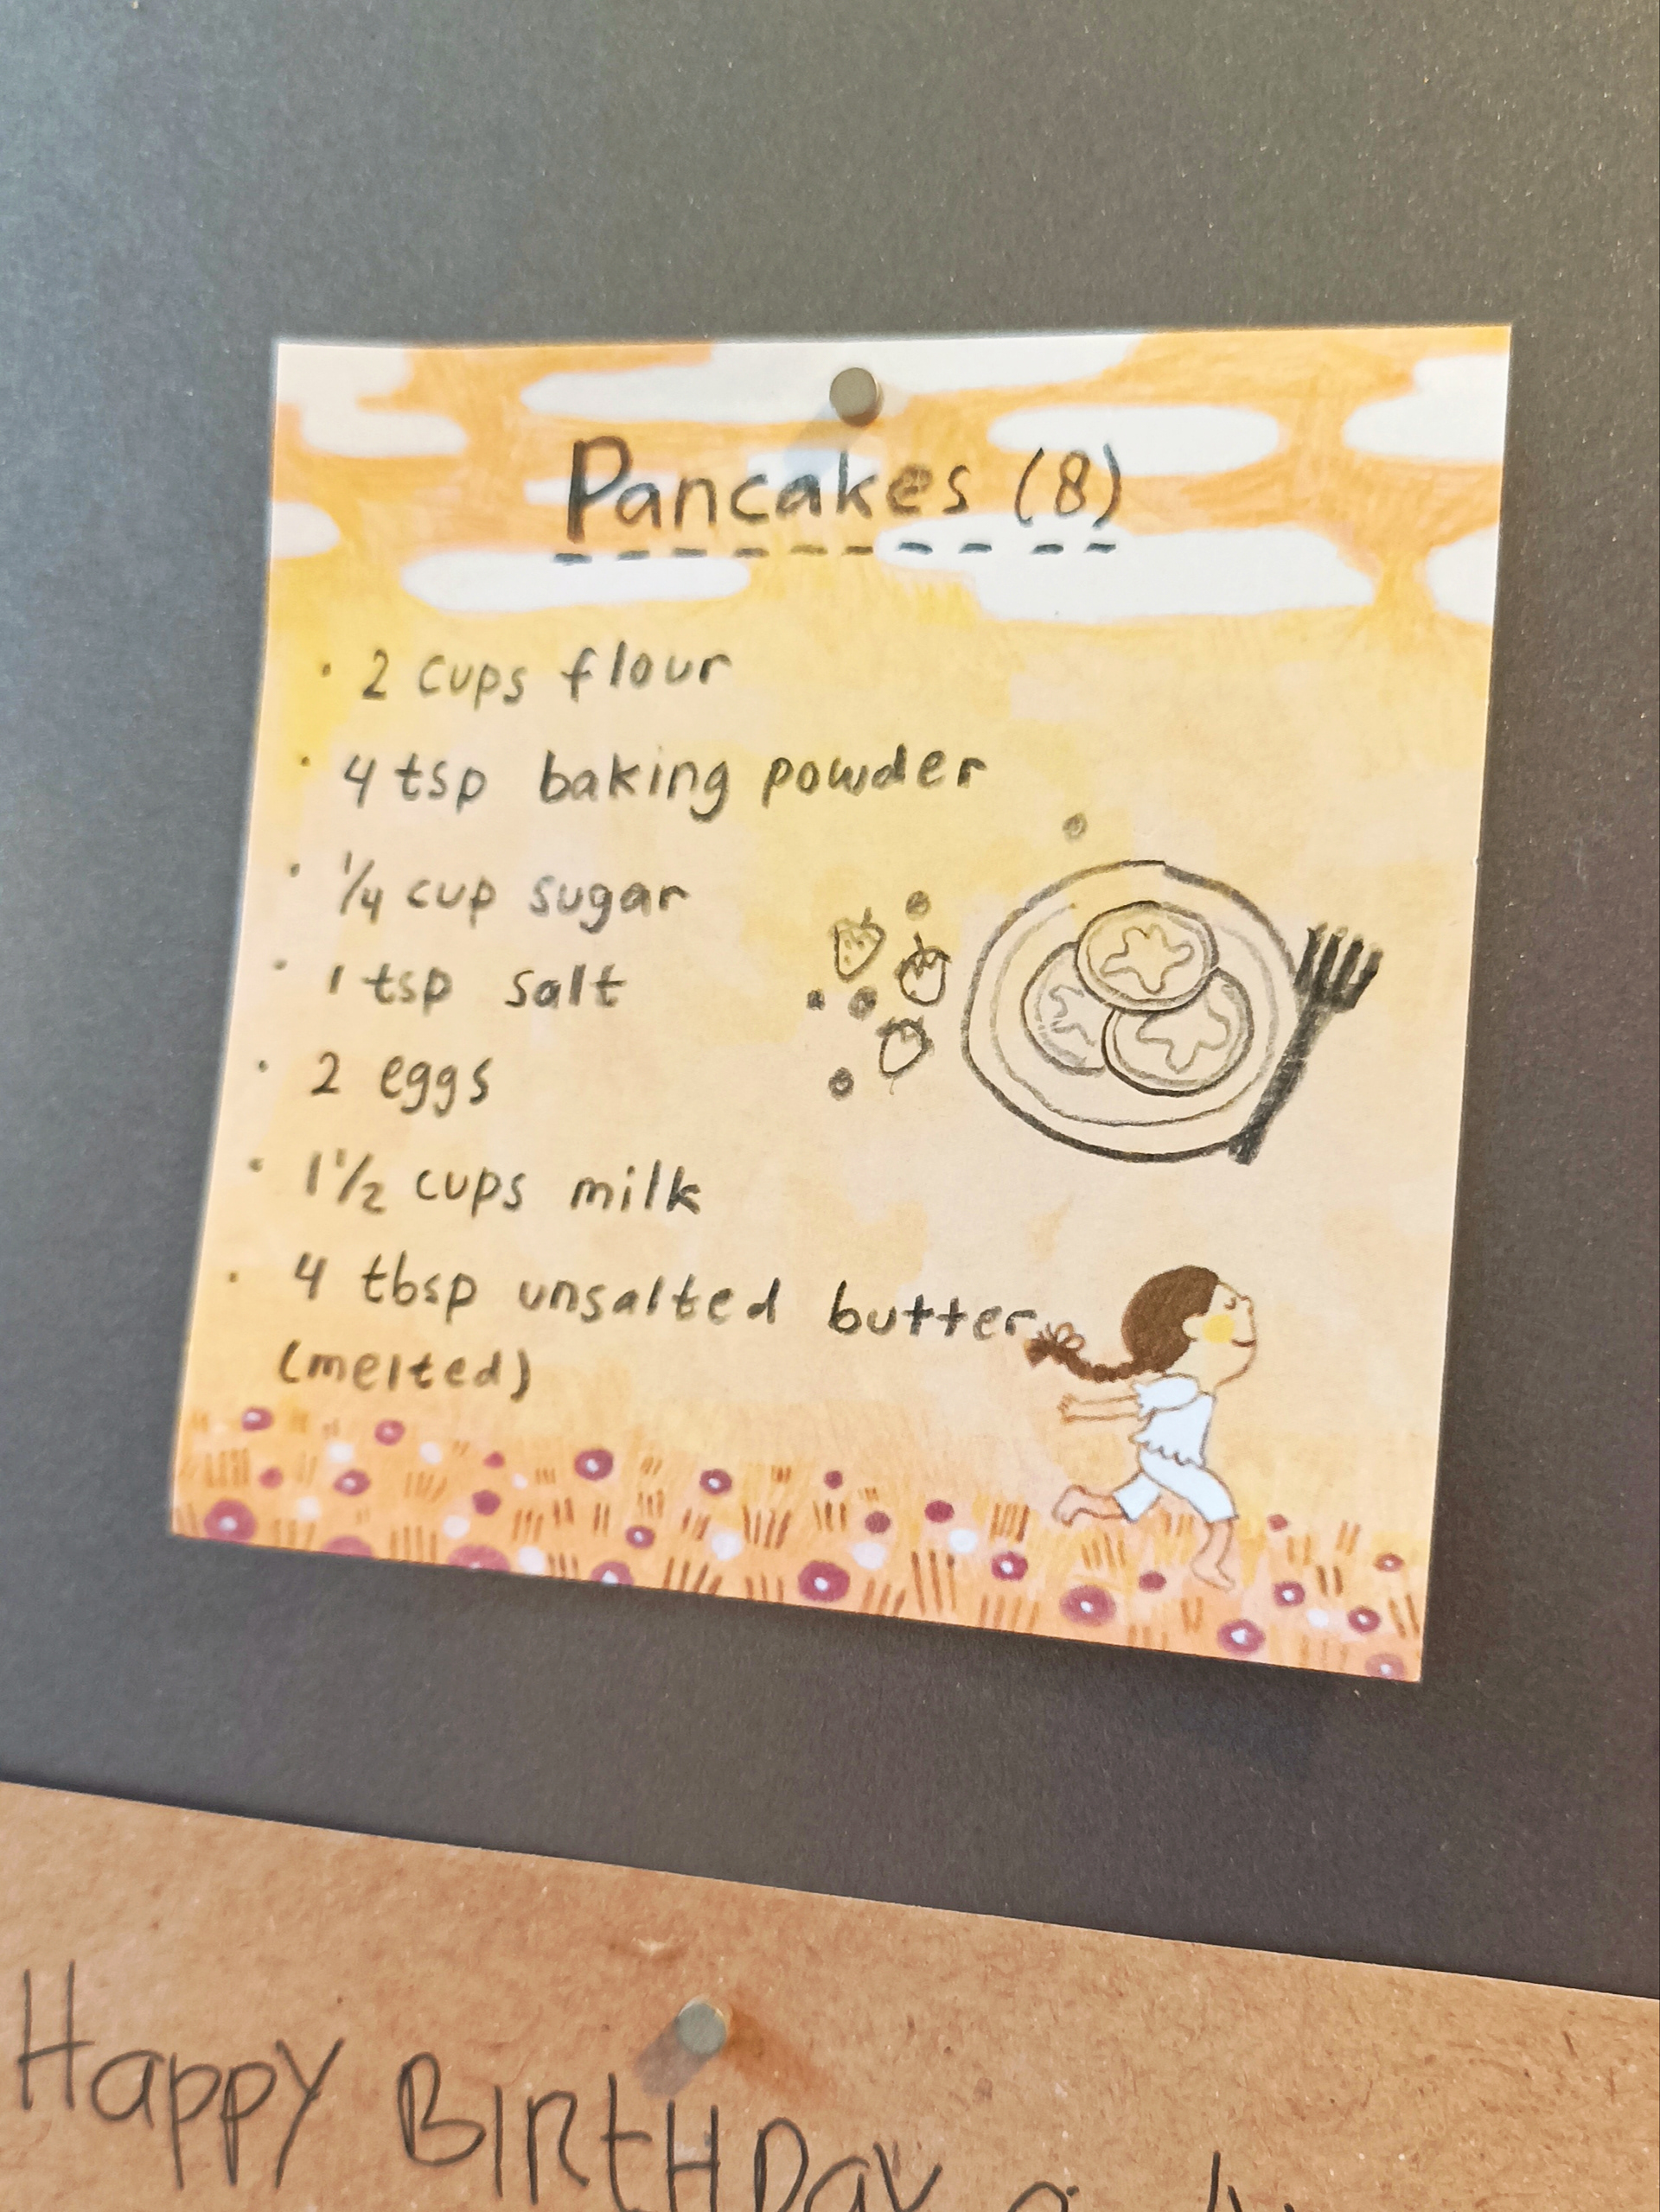 Pancakes (8)
· 2 cups flour
· 4 tsp baking powder
· 1/4 cup sugar
· 1 tsp salt
· 2 eggs
· 1 1/2 cups milk
· 4 tbsp unsalted butter
(melted)
Happy BIRtHDay